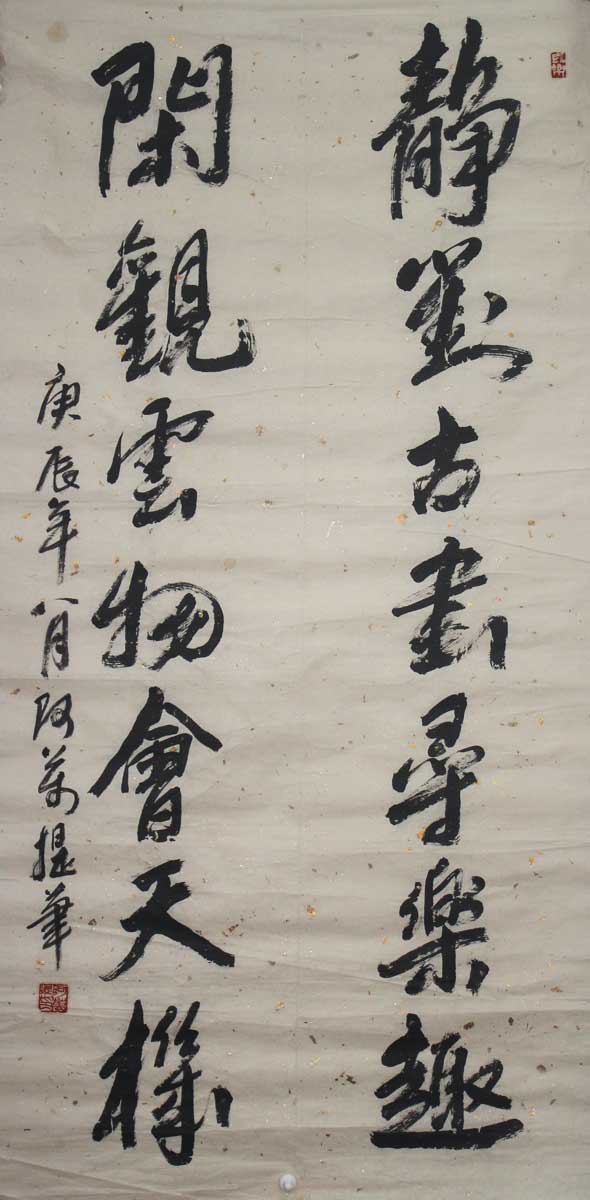 靜對古書尋樂趣
閑觀雲物會天機
庚辰年八月阿萬提筆